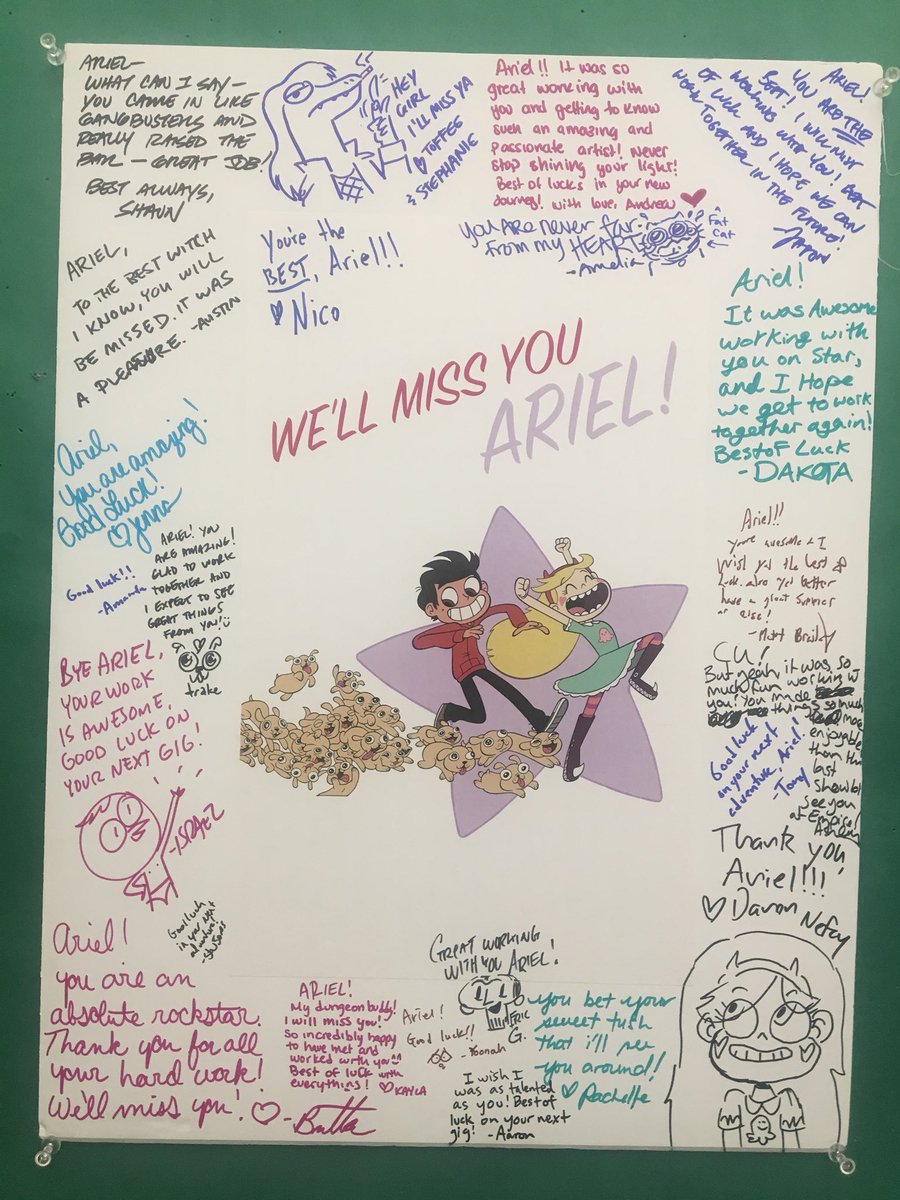 ARIEL-
WHAT CAN I SAY-
YOU CAME IN LIKE
GANGBUSTERS AND
REALLY RAISED THE
BAR - GREAT JOB.
BEST ALWAYS,
SHAUN
HEY
GIRL
I'LL MISS YA
TOFFEE
& STEPHANIE
Ariel!! It was so
great working with
you and getting to know
such an amazing and
passionate artist! Never
stop shining your light!
Best of lucks in your new
Journey! with love, Andrew
ARIEL!
YOU ARE THE
BEST! I WILL MISS
WORKING WITH YOU! BEST
OF LUCK AND I HOPE WE CAN
WORK TOGETHER IN THE FUTURE!
ARIEL,
TO THE BEST WITCH
I KNOW, YOU WILL
BE MISSED. IT WAS
A PLEASURE. -AUSTIN
You're the
BEST, Ariel!!!
Nico
YOU ARE never far
From my HEART
-Amelia
Fat
Cat
WE'LL MISS YOU
ARIEL!
Ariel!
It was Awesome
working with
you on Star,
and I Hope
we get to work
together again!
Best of Luck
-DAKOTA
Ariel,
You are amazing!
Good Luck!
Jenna
Good luck!!
-Amanda
ARIEL! YOU
ARE AMAZING!
GLAD TO WORK
TOGETHER AND
I EXPECT TO SEE
GREAT THINGS
FROM YOU!
drake
Ariel!!
You're awesome & I
wish you the best of
luck. also you better
have a great summer
or else!
-Matt Braily
BYE ARIEL,
YOUR WORK
IS AWESOME,
GOOD LUCK ON
YOUR NEXT GIG!
-ISRAEL
CU!
But yeah, it was so
much fun working w
you! You made
things so much
more
enjoyable
than the
last
show
see you
at Empire!
Good luck
on your next
adventure, Ariel!
-Tony
Thank you,
Ariel!!!
Daron Nefcy
Good luck
in your next
adventure!
Ariel!
you are an
absolute rockstar.
Thank you for all
your hard work!
We'll miss you!
-Butta
ARIEL!
My dungeon buddy!
I will miss you!
So incredibly happy
to have met and
worked with you
Best of luck with
everything!
KAYLA
Ariel!
Good luck!!
-Yoonah
GREAT WORKING
WITH YOU ARIEL!
ERIC
G.
I wish I
was as talented
as you! Best of
luck on your next
gig! -Aaron
You bet your
sweet tush
that i'll see
you around!
Rachelle